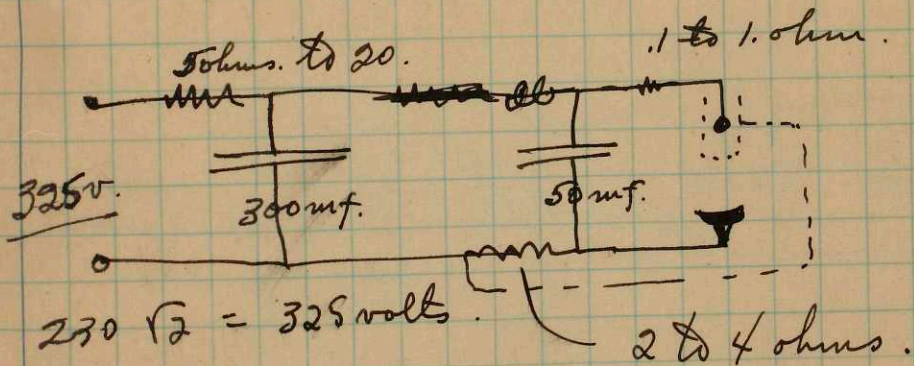 5 ohms. to 20.
.1 to 1. ohm.
325v.
300mf.
50mf.
230 √2 = 325 volts.
2 to 4 ohms.